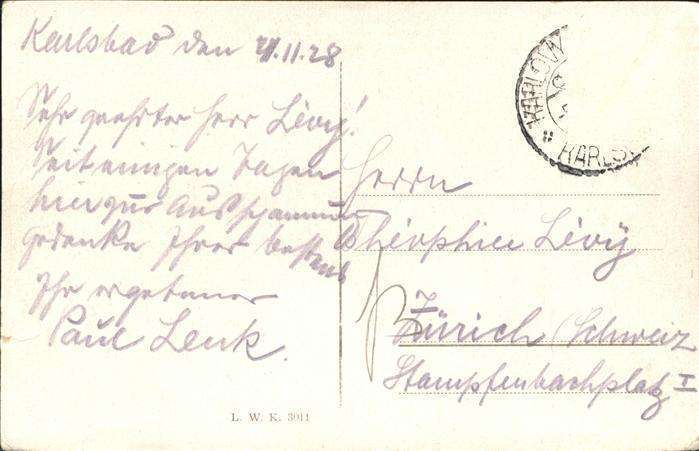 Karlsbad den 21.11.28
Sehr geehrter Herr Lévy!
Seit einigen Tagen
hier zur Ausspannung
gedenke Ihrer bestens
Ihr ergebener
Paul Lenk.
L. W. K. 3011
KARLOVY
KARLS
Herrn
Théophile Lévy
Zürich (Schweiz
Stampfenbachplatz I